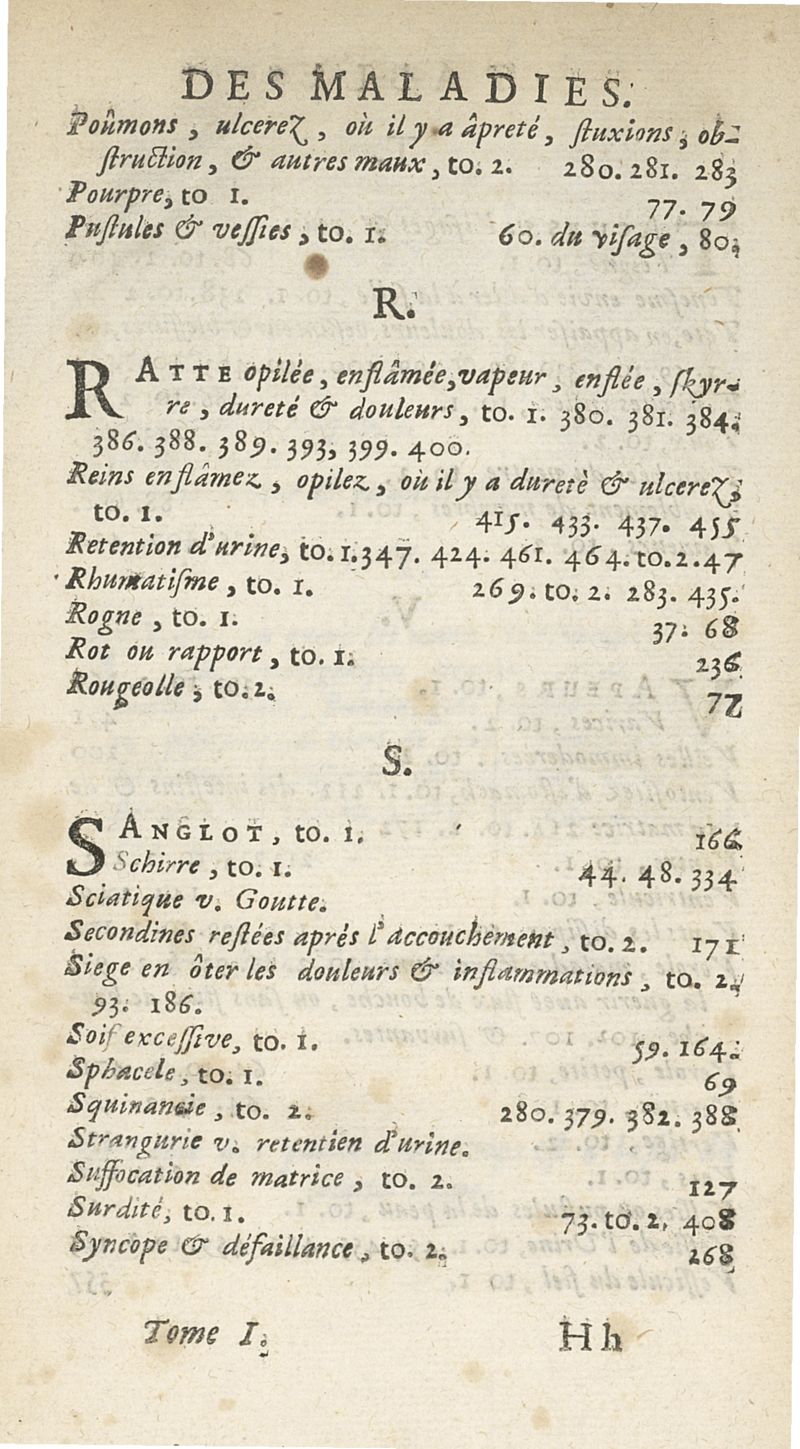 DES MALADIES.
Poûmons, ulcerez, où il y a âpreté, fluxions, ob-
struction, & autres maux, to. 2. 280. 281. 283
Pourpre, to 1. 77. 79
Pustules & vessies, to. 1. 60. du visage, 80.
R.
RATTE opilée, enflâmée, vapeur, enflée, skyr-
re, dureté & douleurs, to. 1. 380. 381. 384.
386. 388. 389. 393, 399. 400.
Reins enflâmez, opilez, où il y a duretè & ulcerez,
to. 1. 415. 433. 437. 455
Retention d'urine, to. 1. 347. 424. 461. 464. to. 2. 47
Rhumatisme, to. 1. 269. to. 2. 283. 435.
Rogne, to. 1. 37. 68
Rot ou rapport, to. 1. 236
Rougeolle, to. 2. 77
S.
SANGLOT, to. 1. 166
Schirre, to. 1. 44. 48. 334
Sciatique v. Goutte.
Secondines restées aprés l'accouchement, to. 2. 171
Siege en ôter les douleurs & inflammations, to. 2.
93. 186.
Soif excessive, to. 1. 59. 164.
Sphacele, to. 1. 69
Squinancie, to. 2. 280. 379. 382. 388
Strangurie v. retentien d'urine.
Suffocation de matrice, to. 2. 127
Surdité, to. 1. 73. to. 2. 408
Syncope & défaillance, to. 2. 268
Tome I. Hh